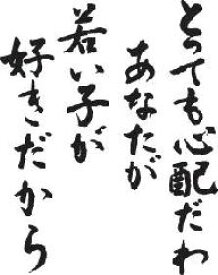 とっても心配だわ
あなたが
若い子が
好きだから